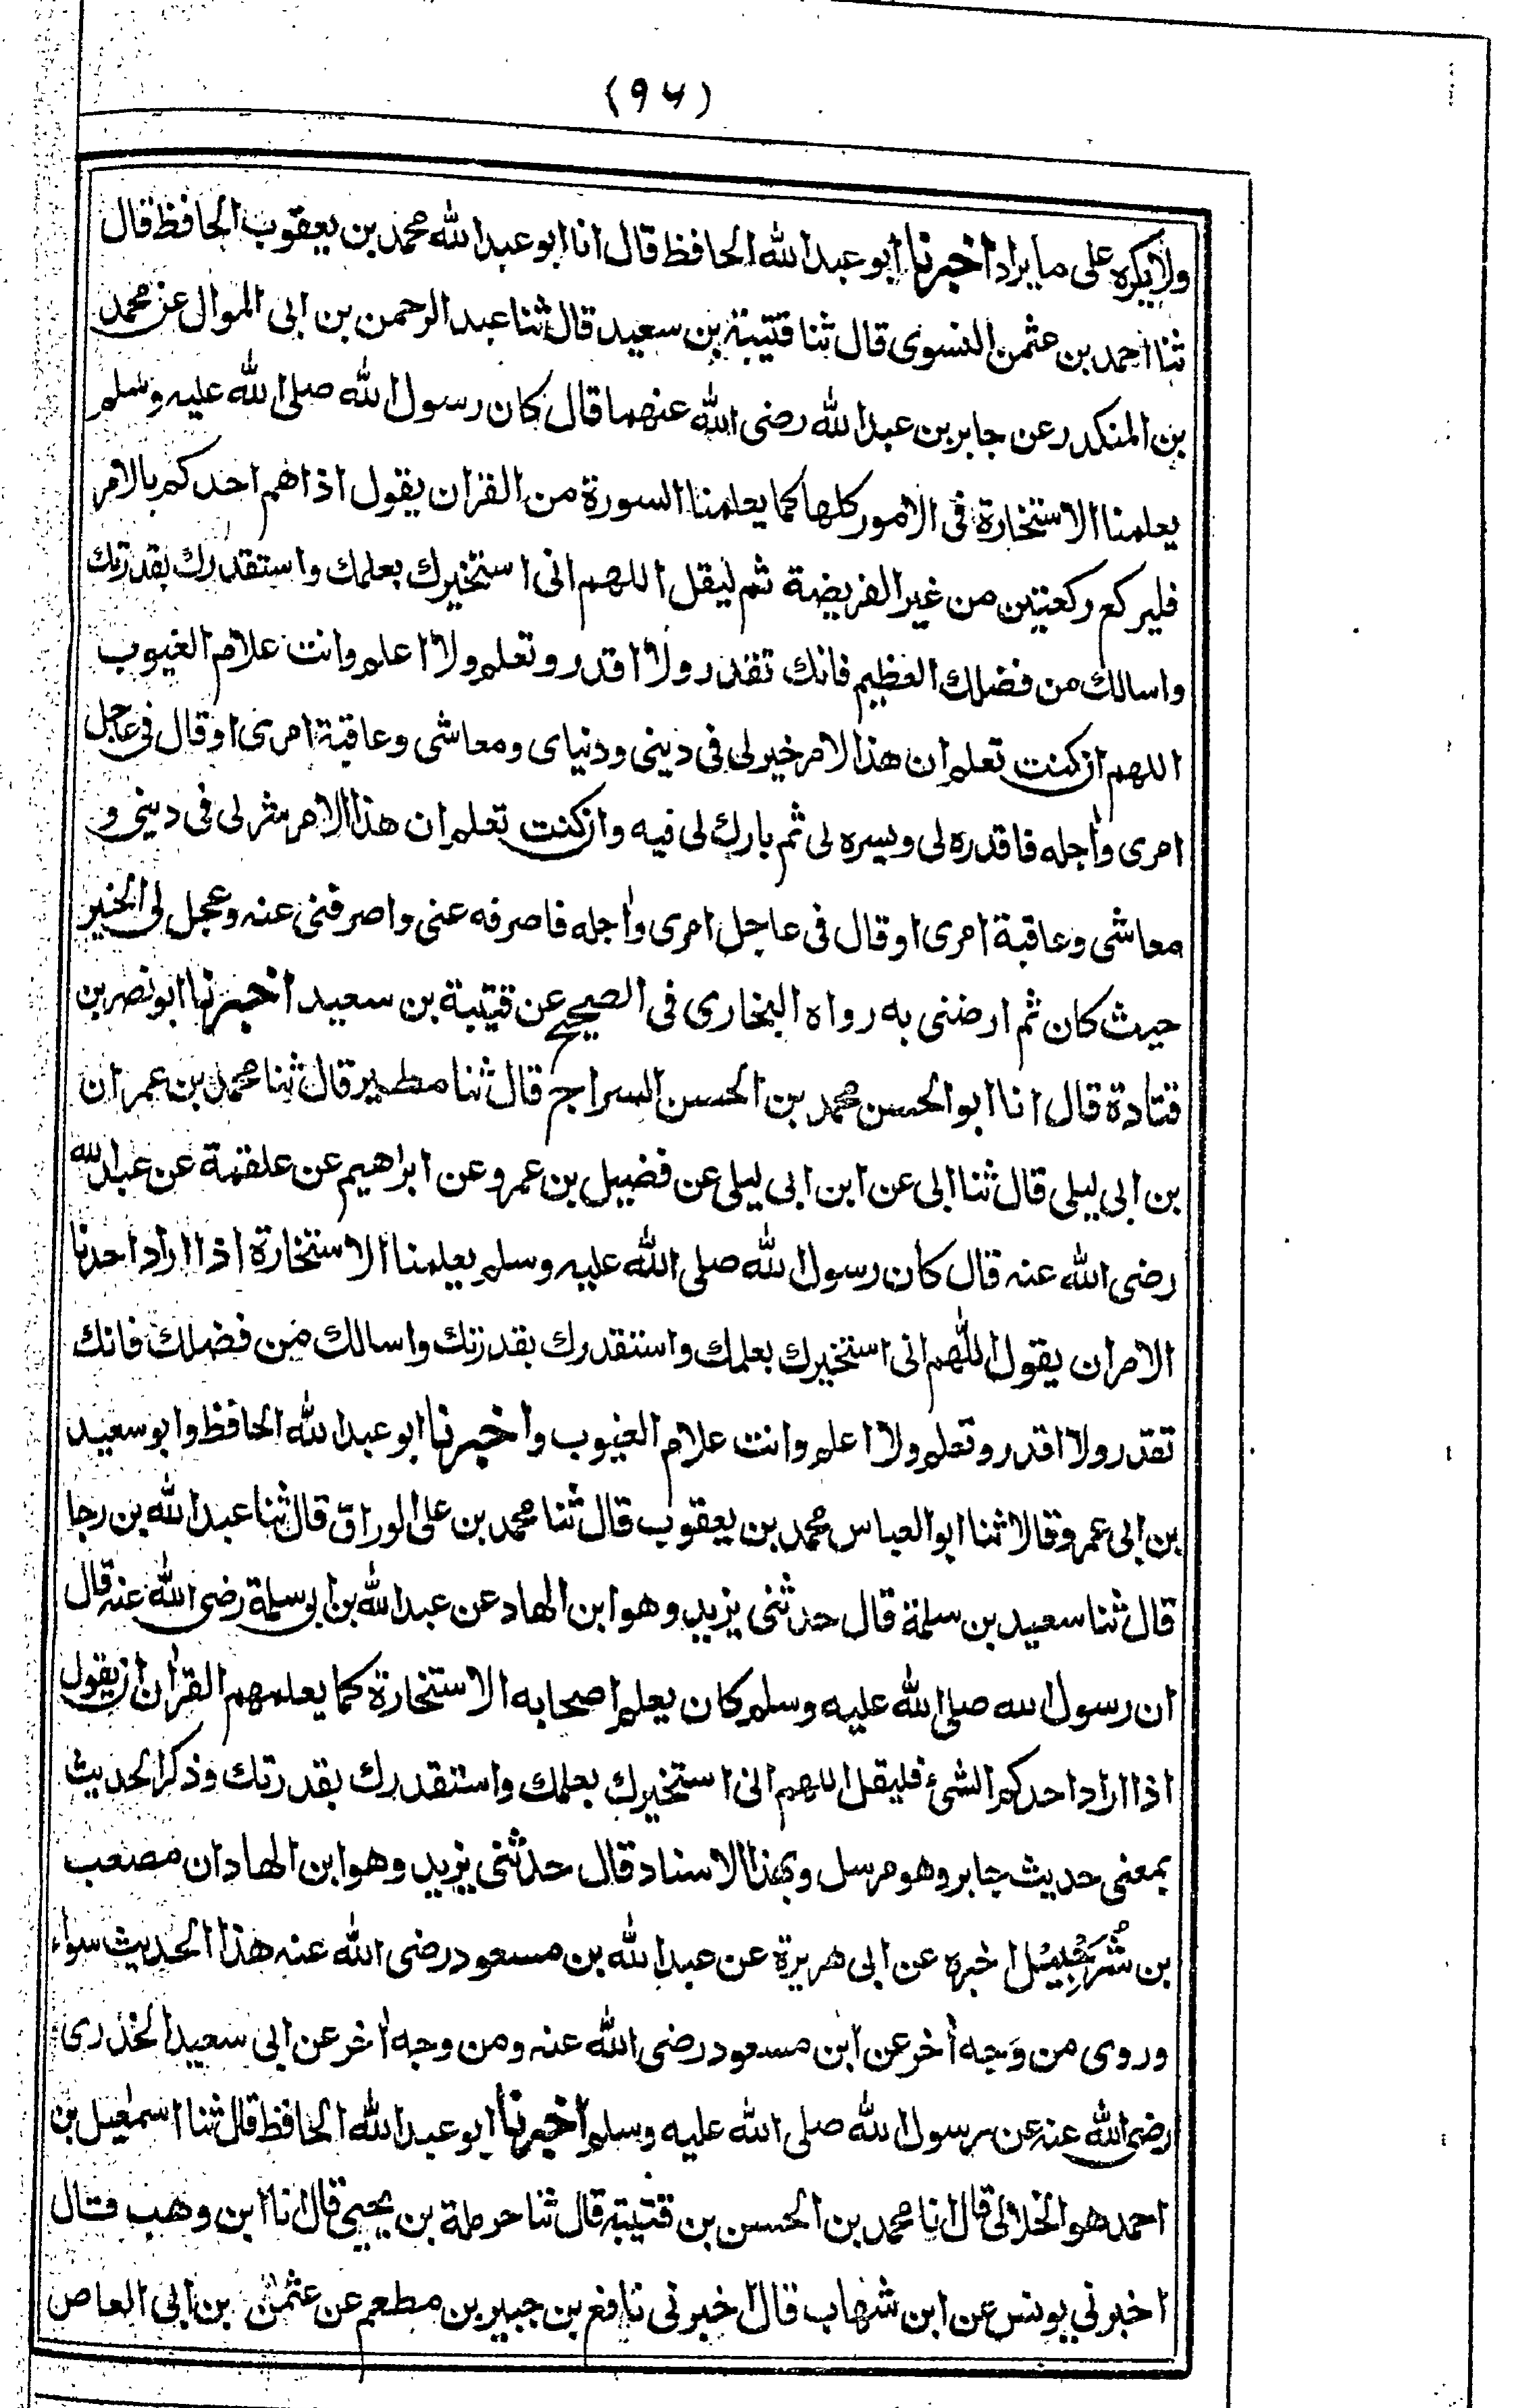 (٩٤)
ولا يكره على ما يراد اخبرنا ابو عبد الله الحافظ قال انا ابو عبد الله محمد بن يعقوب الحافظ قال
ثنا احمد بن عثمن النسوى قال ثنا قتيبة بن سعيد قال ثنا عبد الرحمن بن ابى الموال عن محمد
بن المنكدر عن جابر بن عبد الله رضى الله عنهما قال كان رسول الله صلى الله عليه وسلم
يعلمنا الاستخارة فى الامور كلها كما يعلمنا السورة من القران يقول اذا هم احدكم بالامر
فليركع ركعتين من غير الفريضة ثم ليقل اللهم انى استخيرك بعلمك واستقدرك بقدرتك
واسالك من فضلك العظيم فانك تقدر ولا اقدر وتعلم ولا اعلم وانت علام الغيوب
اللهم ان كنت تعلم ان هذا الامر خير لى فى دينى ودنياى ومعاشى وعاقبة امرى او قال فى عاجل
امرى واٰجله فاقدره لى ويسره لى ثم بارك لى فيه وان كنت تعلم ان هذا الامر شر لى فى دينى و
معاشى وعاقبة امرى او قال فى عاجل امرى واٰجله فاصرفه عنى واصرفنى عنه وعجل لى الخير
حيث كان ثم ارضنى به رواه البخارى فى الصحيح عن قتيبة بن سعيد اخبرنا ابو نصر بن
قتادة قال انا ابو الحسن محمد بن الحسن السراج قال ثنا مطير قال ثنا محمد بن عمران
بن ابى ليلى قال ثنا ابى عن ابن ابى ليلى عن فضيل بن عمرو عن ابراهيم عن علقمة عن عبد الله
رضى الله عنه قال كان رسول الله صلى الله عليه وسلم يعلمنا الاستخارة اذا اراد احدنا
الامر ان يقول اللّٰهم انى استخيرك بعلمك واستقدرك بقدرتك واسالك من فضلك فانك
تقدر ولا اقدر وتعلم ولا اعلم وانت علام الغيوب واخبرنا ابو عبد الله الحافظ وابو سعيد
بن ابى عمرو قالا ثنا ابو العباس محمد بن يعقوب قال ثنا محمد بن على الوراق قال ثنا عبد الله بن رجا
قال ثنا سعيد بن سلمة قال حدثنى يزيد وهو ابن الهاد عن عبد الله بن ابى سلمة رضى الله عنه قال
ان رسول الله صلى الله عليه وسلم كان يعلم اصحابه الاستخارة كما يعلمهم القراٰن ان يقول
اذا اراد احدكم الشئ فليقل اللهم انى استخيرك بعلمك واستقدرك بقدرتك وذكر الحديث
بمعنى حديث جابر وهو مرسل وبهذا الاسناد قال حدثنى يزيد وهو ابن الهاد ان مصعب
بن شُرَحْبِيْل اخبره عن ابى هريرة عن عبد الله بن مسعود رضى الله عنه هذا الحديث سواء
وروى من وَجه اٰخر عن ابن مسعود رضى الله عنه ومن وجه اٰخر عن ابى سعيد الخدرى
رضى الله عنه عن رسول الله صلى الله عليه وسلم اخبرنا ابو عبد الله الحافظ قال ثنا اسمٰعيل بن
احمد هو الخلالى قال انا محمد بن الحسن بن قتيبة قال ثنا حرملة بن يحيى قال انا ابن وهب قال
اخبرنى يونس عن ابن شهاب قال اخبرنى نافع بن جبير بن مطعم عن عثمٰن بن ابى العاص